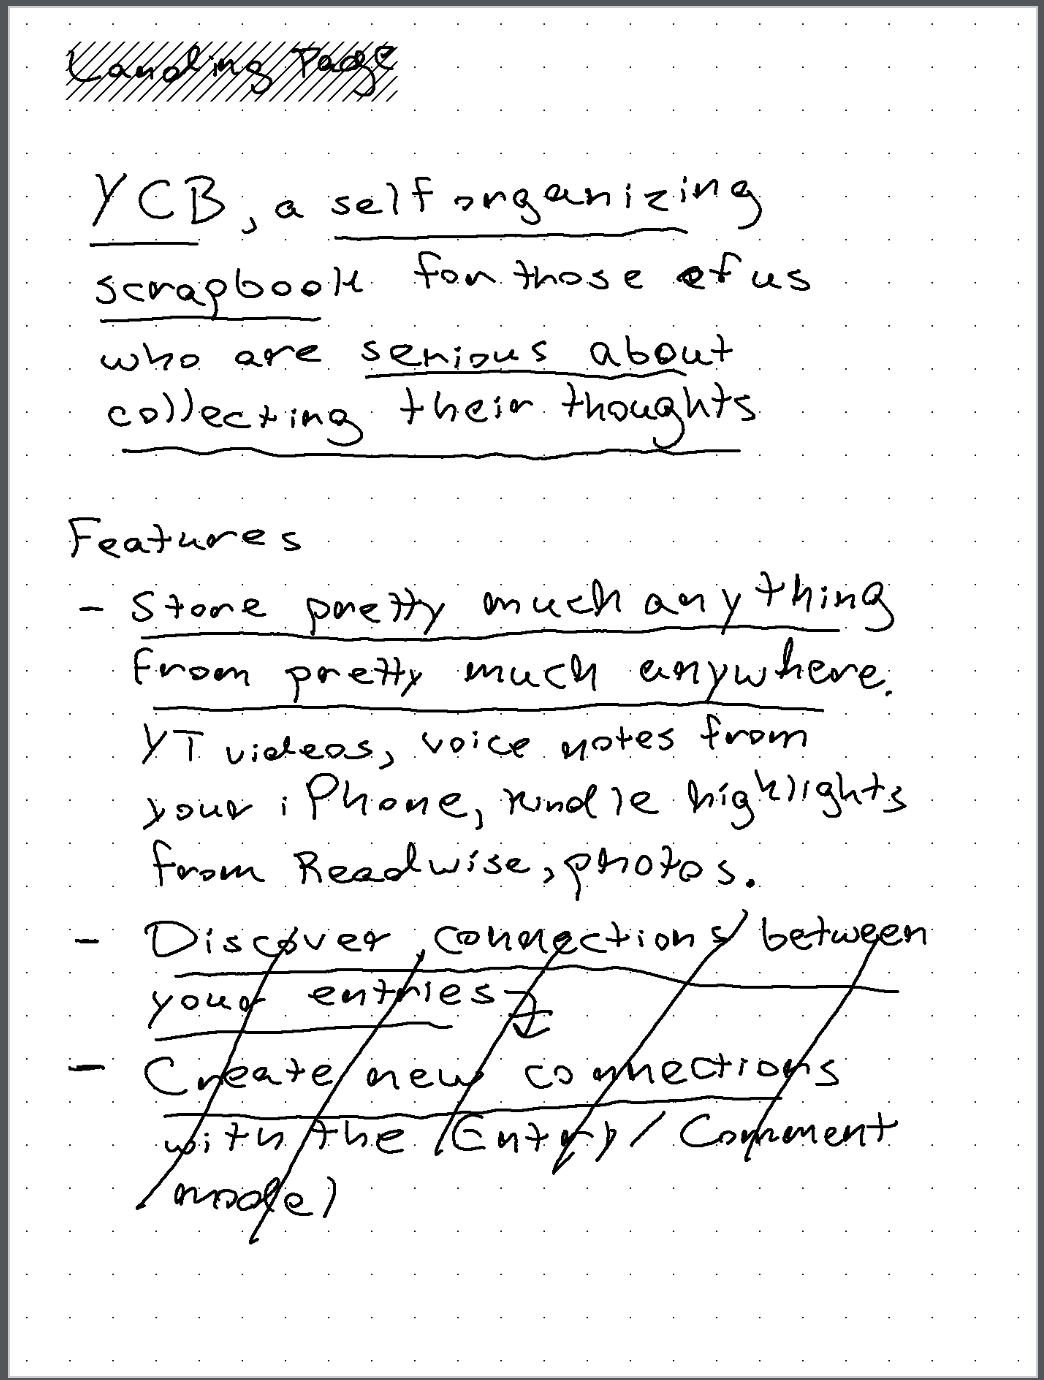 Landing Page
YCB, a self organizing
scrapbook for those of us
who are serious about
collecting their thoughts
Features
- Store pretty much anything
from pretty much anywhere.
YT videos, voice notes from
your iPhone, Kindle highlights
from Readwise, photos.
- Discover connections between
your entries
- Create new connections
with the Entry/Comment
model